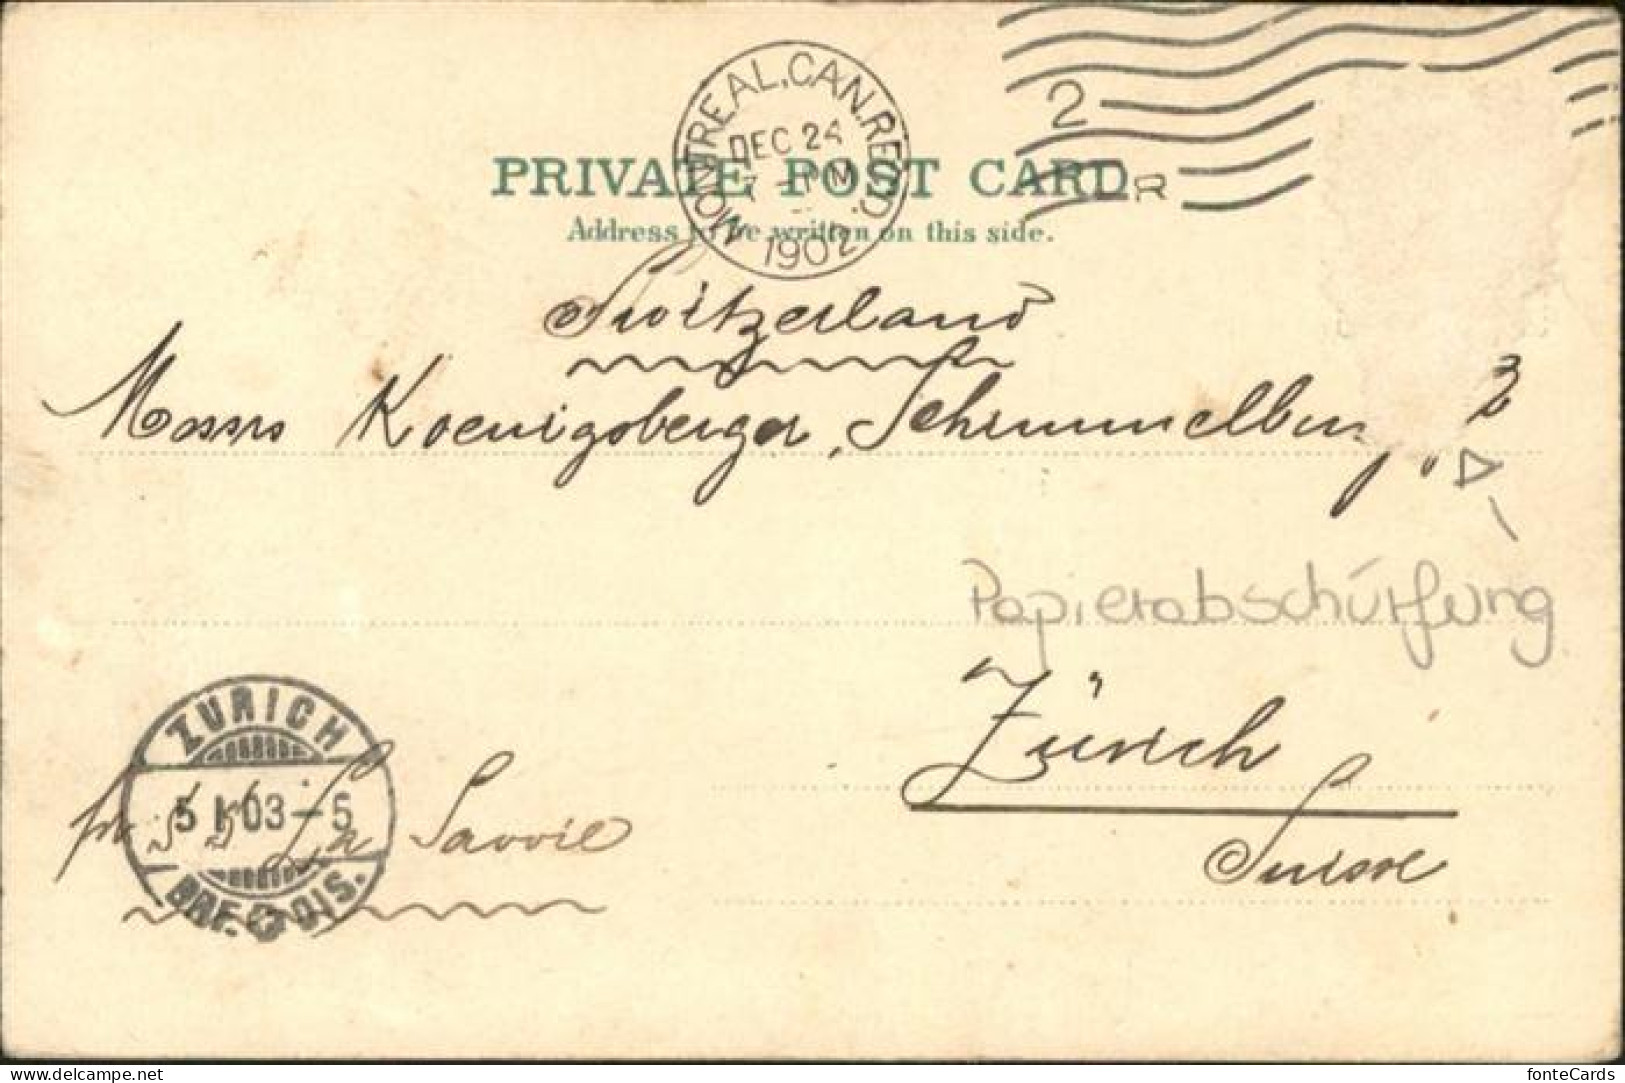 MONTREAL, CAN. REC'D.
DEC 24
7 - PM
1902
2
R
PRIVATE POST CARD
Address to be written on this side.
Switzerland
Messrs Koenigsberger, Schimmelburg
Papierabschürfung
Zürich
Suisse
pr S.S. La Savoie
ZÜRICH
5 I 03 - 5
BRF. DIS.
www.delcampe.net
fonteCards